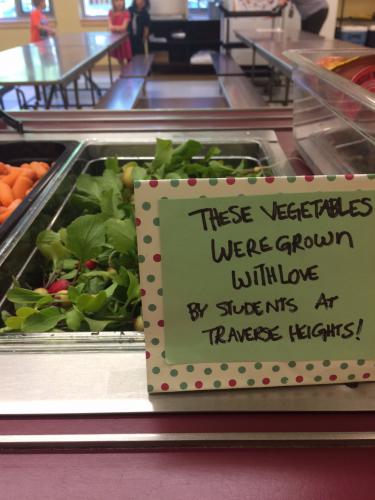 THESE VEGETABLES
WERE GROWN
WITH LOVE
BY STUDENTS AT
TRAVERSE HEIGHTS!